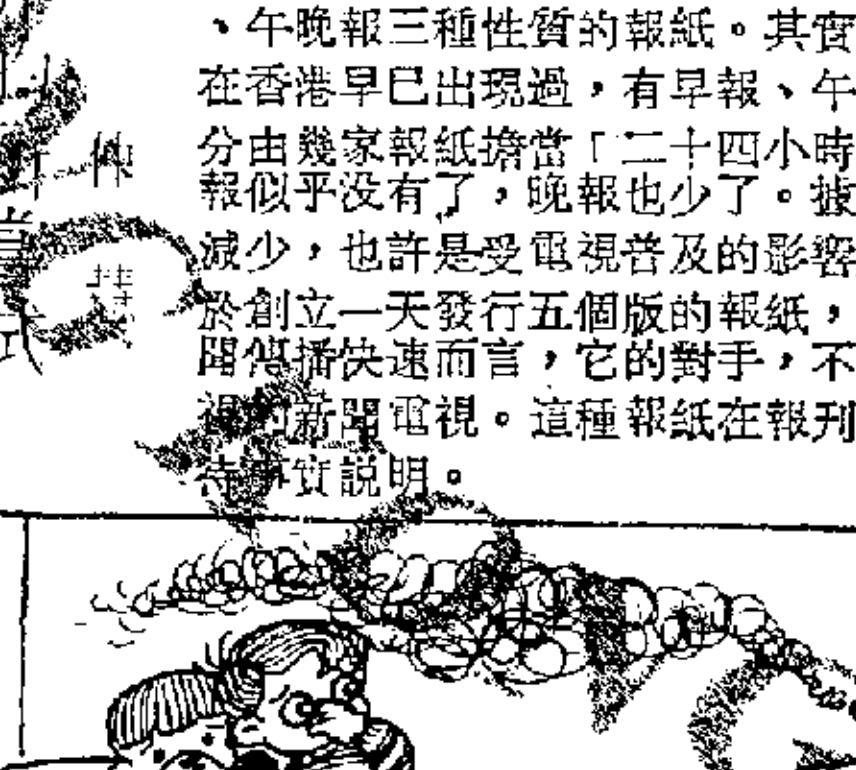 、午晚報三種性質的報紙。其實
在香港早已出現過，有早報、午
分由幾家報紙擔當「二十四小時
報似乎没有了，晚報也少了。據
減少，也許是受電視普及的影響
於創立一天發行五個版的報紙，
聞傳播快速而言，它的對手，不
視和新聞電視。這種報紙在報刊
待事實説明。